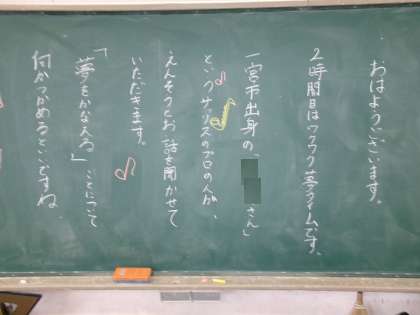 おはようございます。
2時間目はワクワク夢タイムです。
一宮市出身の「 さん」
というサックスのプロの人が、
えんそうとお話を聞かせて
いただきます。
「夢をかなえる」ことについて
何かつかめるといいですね。